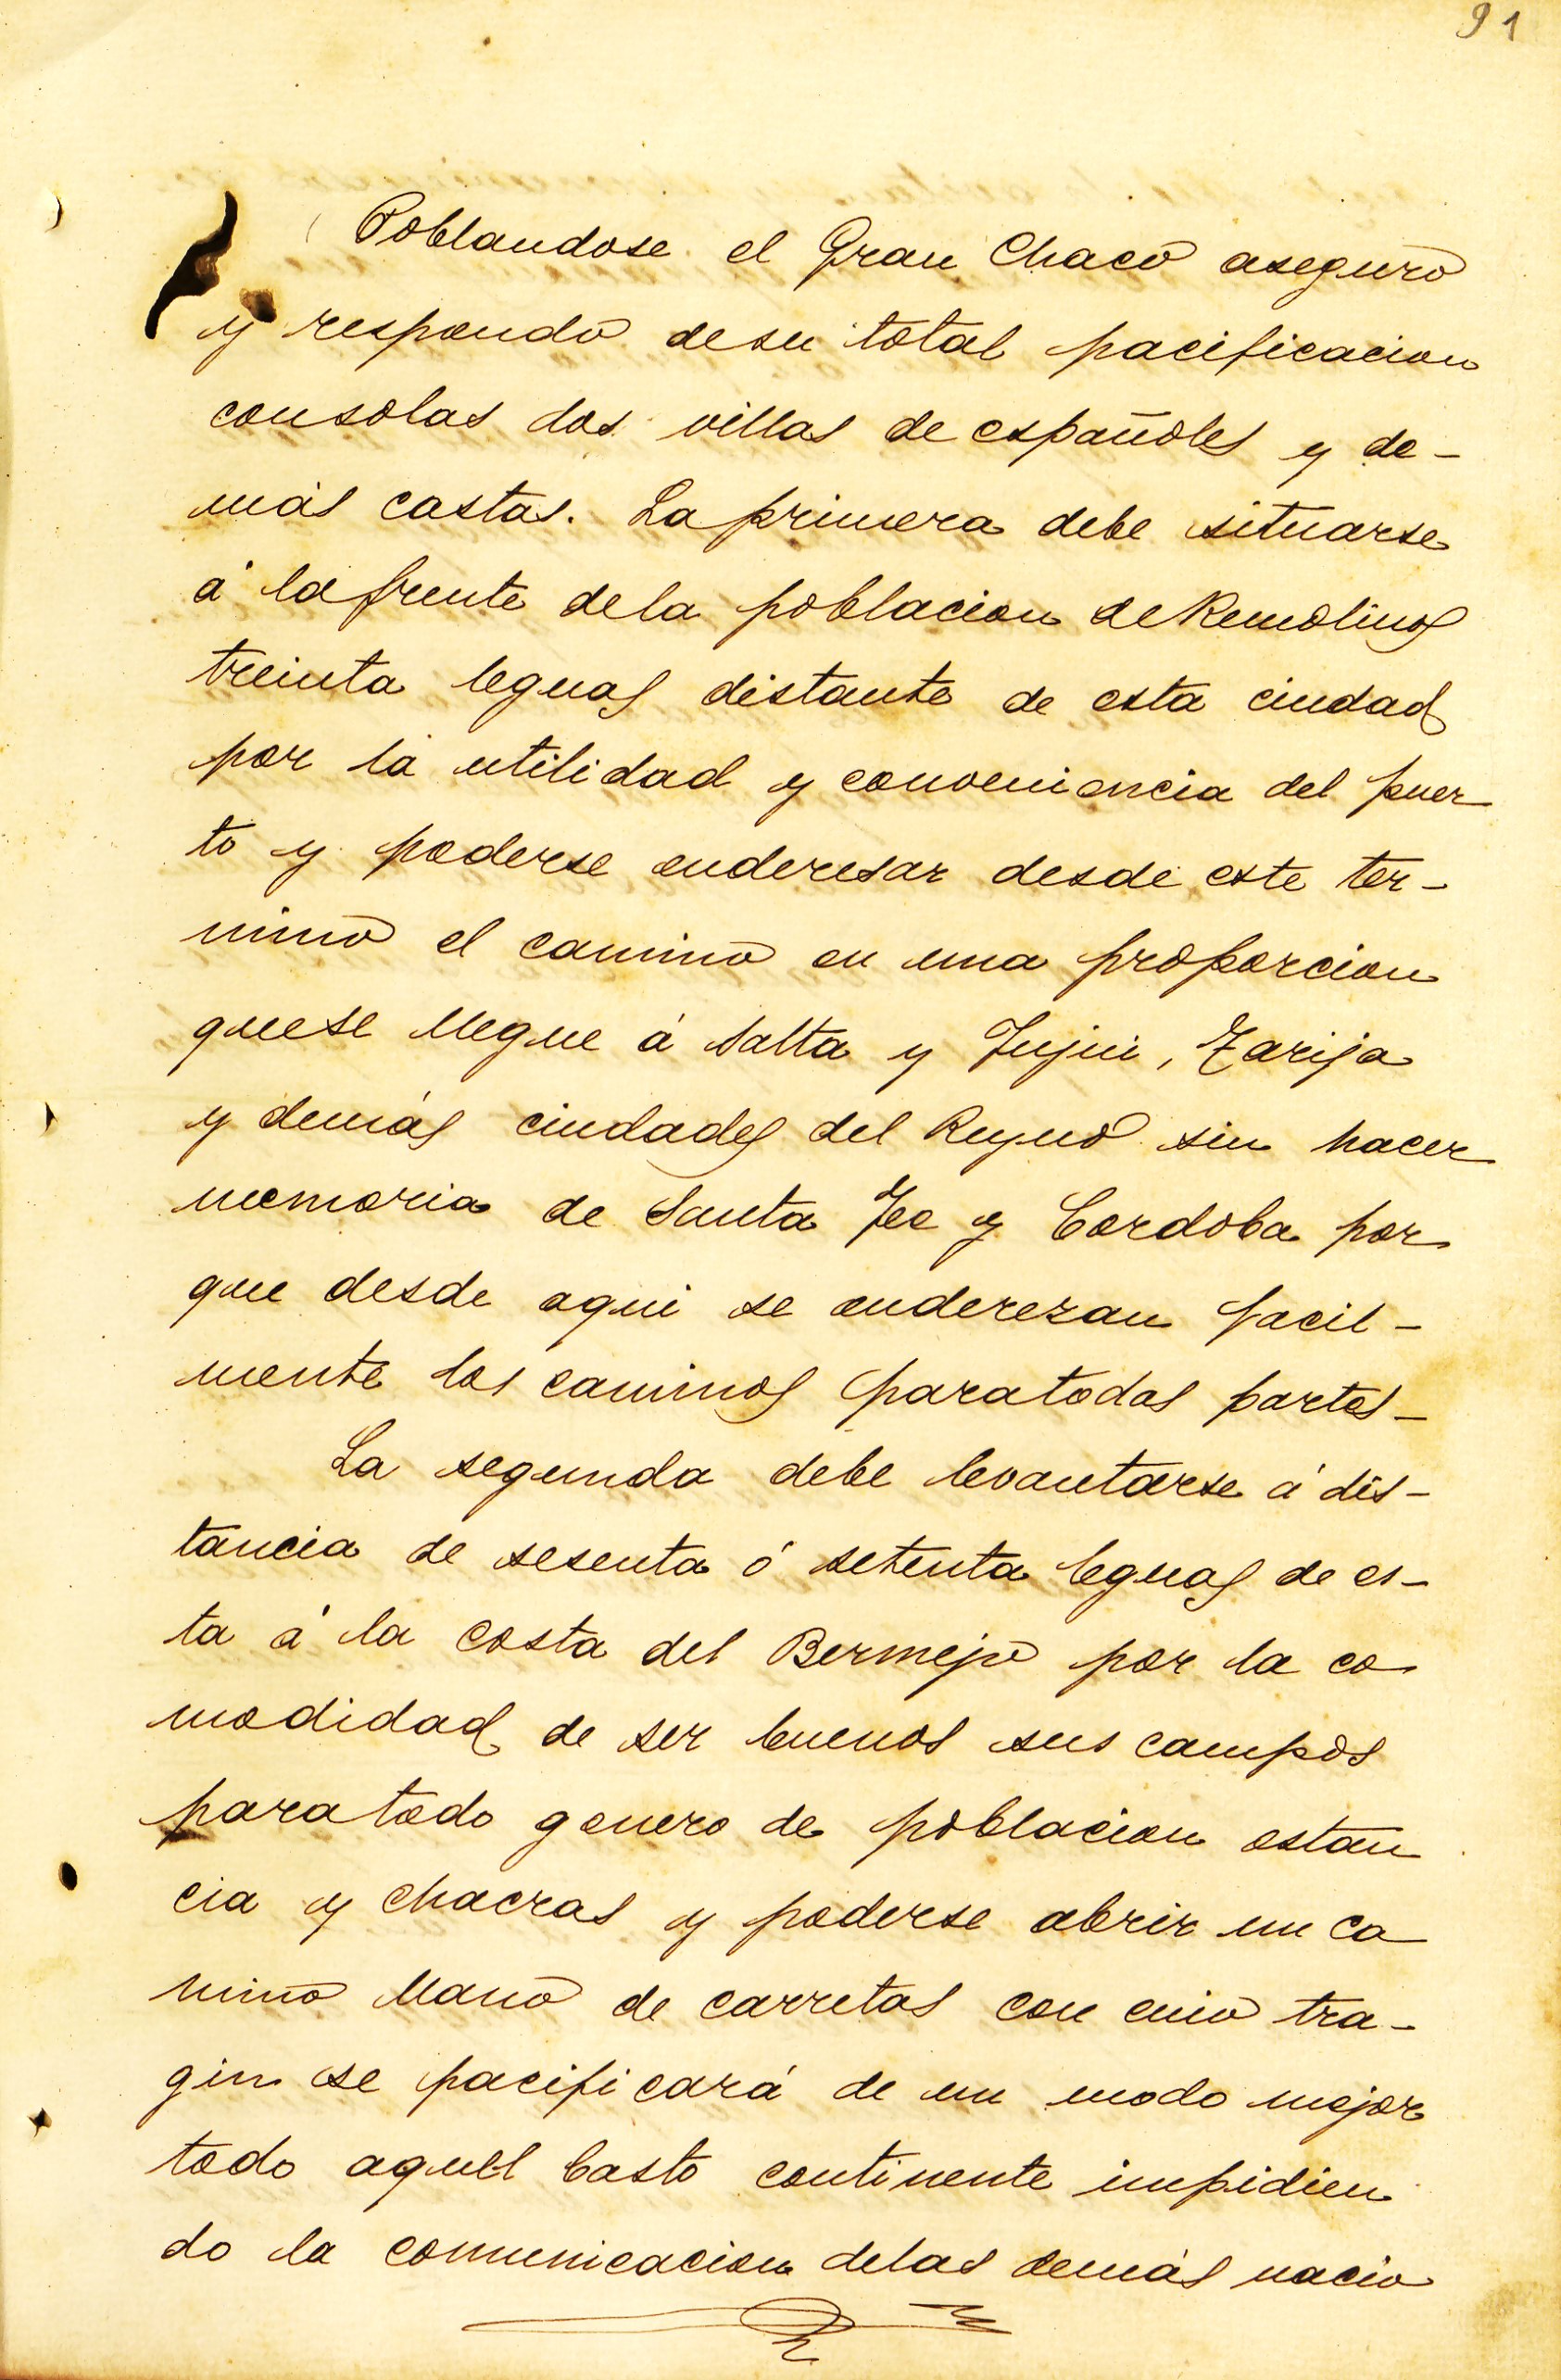 91
Poblandose el Gran Chaco aseguro
y respondo desu total pacificacion
consolas dos villas de españoles y de-
más castas. La primera debe situarse
á la frente dela poblacion de Remolinos
treinta leguas distante de esta ciudad
por la utilidad y conveniencia del puer
to y poderse enderesar desde este ter-
mino el camino en una proporcion
quese llegue á Salta y Jujui, Tarija
y demás ciudades del Reyno sin hacer
memoria de Santa Fee y Cordoba por
que desde aqui se enderezan facil-
mente los caminos paratodas partes-
La segunda debe levantarse á dis-
tancia de sesenta ó setenta leguas de es-
ta á la costa del Bermejo por la co
modidad de ser buenos sus campos
paratodo genero de poblacion estan
cia y chacras y poderse abrir un ca
mino llano de carretas con cuio tra-
gin se pacificará de un modo mejor
todo aquel basto continente impidien
do la comunicacion delas demás nacio